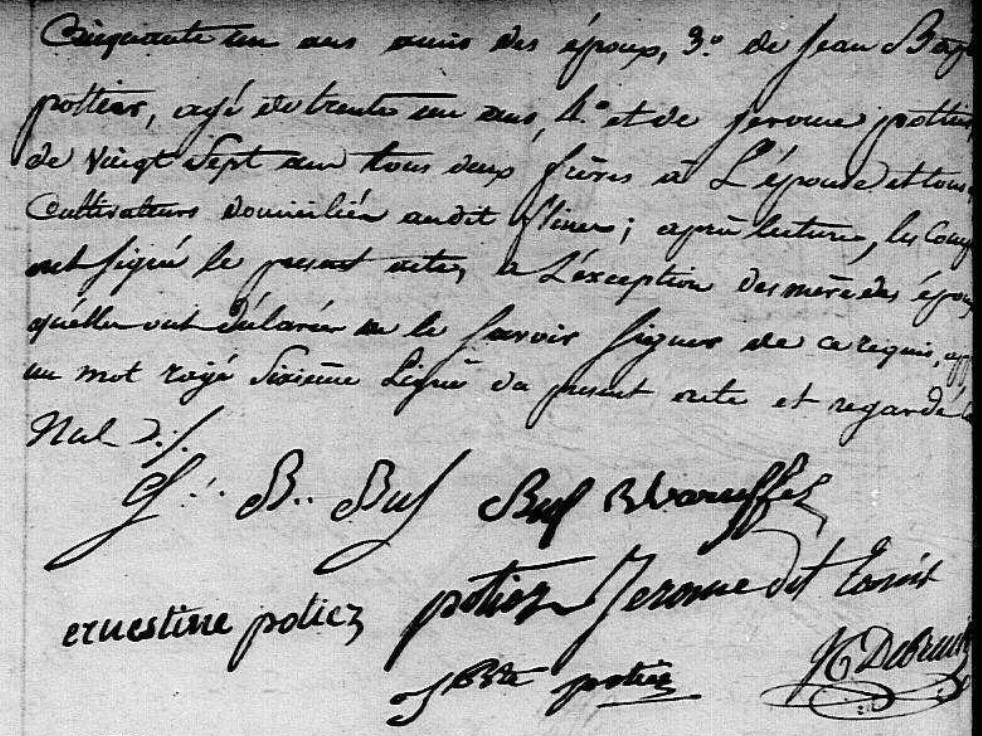 Cinquante un ans amis des époux, 3.° de Jean Bap
pottier, agé de trente un ans, 4.° et de Jerome pottier
de vingt Sept ans tous deux frères à L'épouse et tous
Cultivateurs domiciliés audit flines ; après lecture, les Comp
ont signé le present acte, a L'éxception des mère des époux
qu'elles ont déclarées ne le Savoir signer de ce requis, app
un mot rayé Sixième Ligne du present acte et regardé
Nul ./.
J. B. Buf Buf
ernestine potiez potiez Jerome dit
J Bte potiez